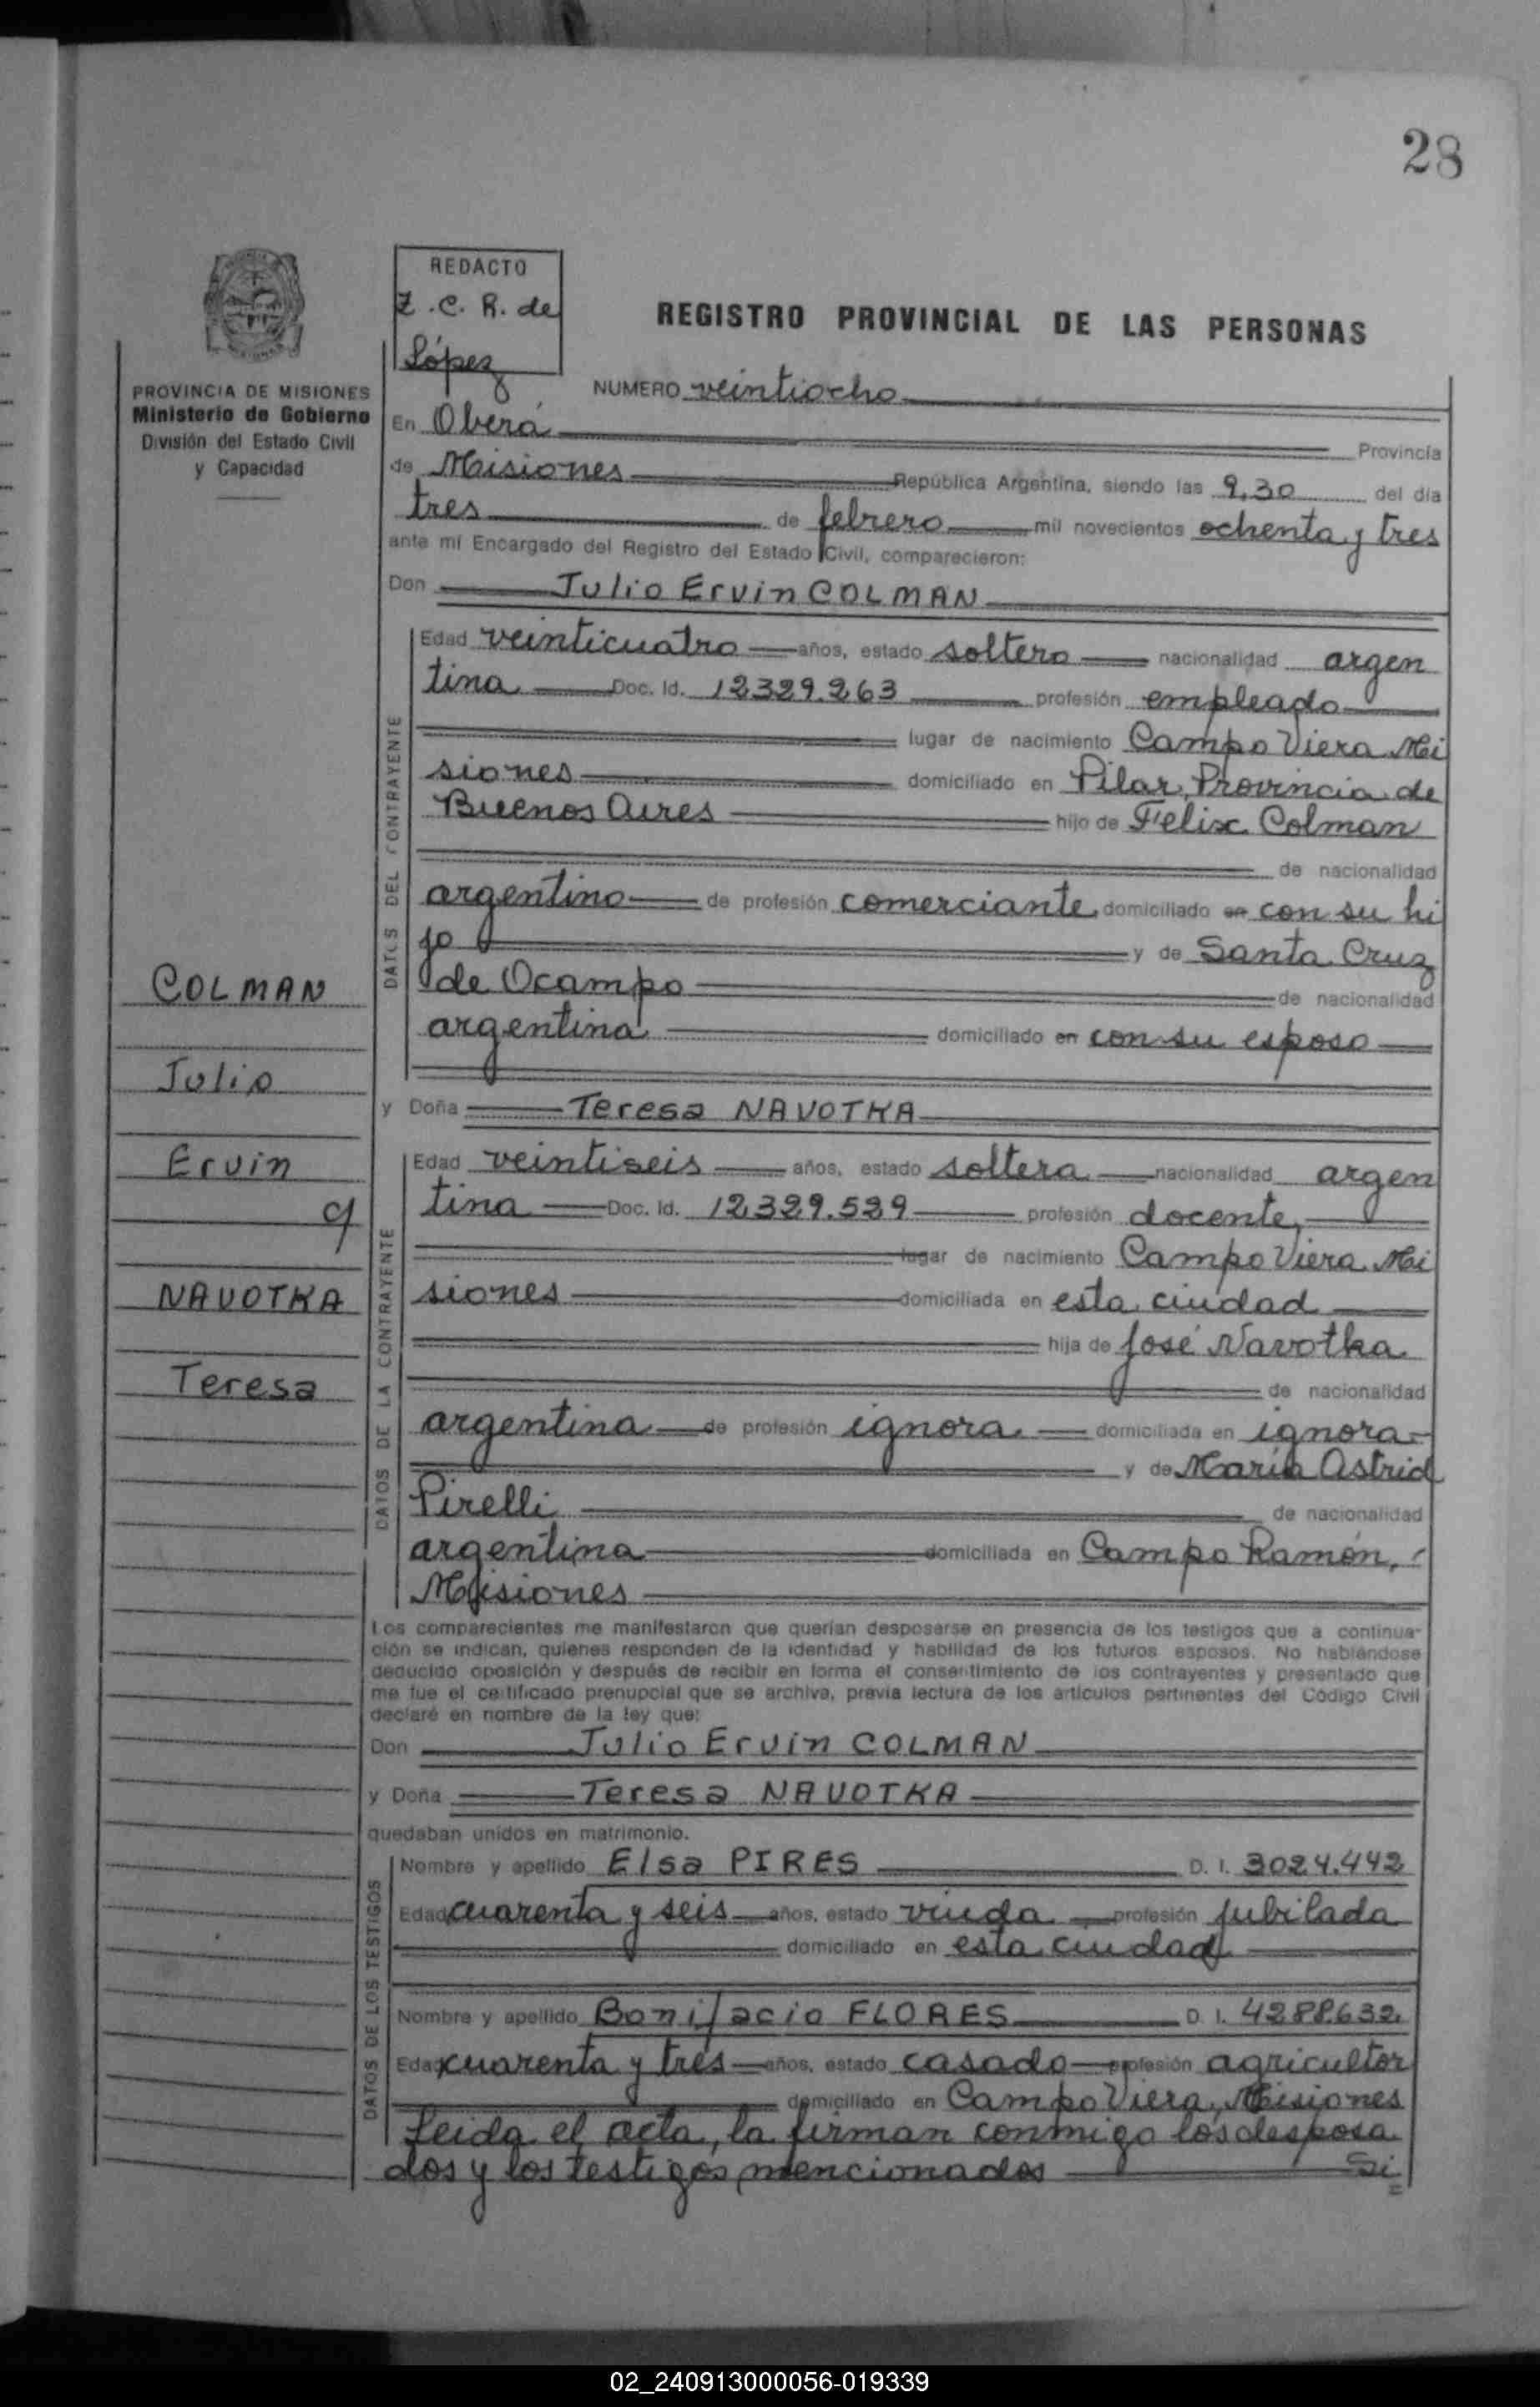 28
REDACTO
Z. C. R. de
López
REGISTRO PROVINCIAL DE LAS PERSONAS
PROVINCIA DE MISIONES
Ministerio de Gobierno
División del Estado Civil
y Capacidad
NUMERO veintiocho
En Oberá Provincia
de Misiones República Argentina, siendo las 9,30 del día
tres de febrero mil novecientos ochenta y tres
ante mí Encargado del Registro del Estado Civil, comparecieron:
Don Julio Ervin COLMAN
DATOS DEL CONTRAYENTE
Edad veinticuatro años, estado soltero nacionalidad argen
tina Doc. Id. 12329.263 profesión empleado
lugar de nacimiento Campo Viera Mi
siones domiciliado en Pilar, Provincia de
Buenos Aires hijo de Felix Colman
de nacionalidad
argentino de profesión comerciante domiciliado en con su hi
jo y de Santa Cruz
de Ocampo de nacionalidad
argentina domiciliado en con su esposo
y Doña Teresa NAVOTKA
DATOS DE LA CONTRAYENTE
Edad veintiseis años, estado soltera nacionalidad argen
tina Doc. Id. 12329.529 profesión docente
lugar de nacimiento Campo Viera Mi
siones domiciliada en esta ciudad
hija de José Navotka
de nacionalidad
argentina de profesión ignora domiciliada en ignora
y de María Astrid
Pirelli de nacionalidad
argentina domiciliada en Campo Ramón,
Misiones
COLMAN
Julio
Ervin
y
NAVOTKA
Teresa
Los comparecientes me manifestaron que querían desposarse en presencia de los testigos que a continua-
ción se indican, quienes responden de la identidad y habilidad de los futuros esposos. No habiéndose
deducido oposición y después de recibir en forma el consentimiento de los contrayentes y presentado que
me fue el certificado prenupcial que se archiva, previa lectura de los artículos pertinentes del Código Civil
declaré en nombre de la ley que:
Don Julio Ervin COLMAN
y Doña Teresa NAVOTKA
quedaban unidos en matrimonio.
DATOS DE LOS TESTIGOS
Nombre y apellido Elsa PIRES D. I. 3024.442
Edad cuarenta y seis años, estado viuda profesión jubilada
domiciliado en esta ciudad
Nombre y apellido Bonifacio FLORES D. I. 4288.632
Edad cuarenta y tres años, estado casado profesión agricultor
domiciliado en Campo Viera, Misiones
Leida el acta, la firman conmigo los desposa
dos y los testigos mencionados Si
02_240913000056-019339